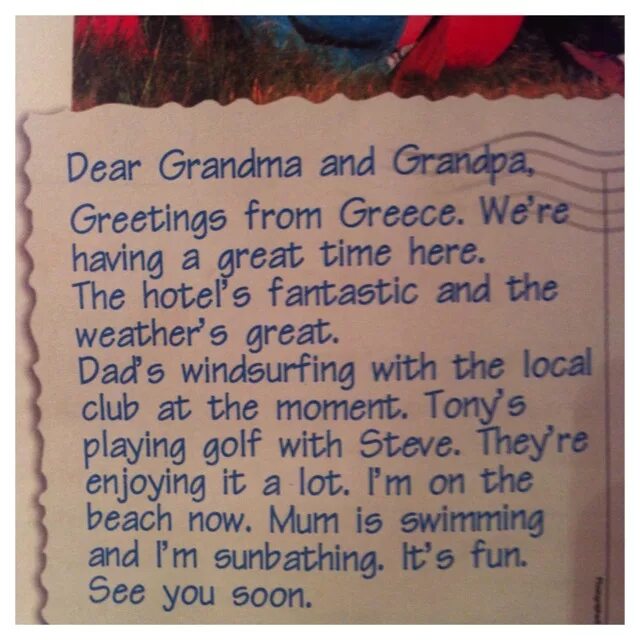 Dear Grandma and Grandpa,
Greetings from Greece. We're
having a great time here.
The hotel's fantastic and the
weather's great.
Dad's windsurfing with the local
club at the moment. Tony's
playing golf with Steve. They're
enjoying it a lot. I'm on the
beach now. Mum is swimming
and I'm sunbathing. It's fun.
See you soon.